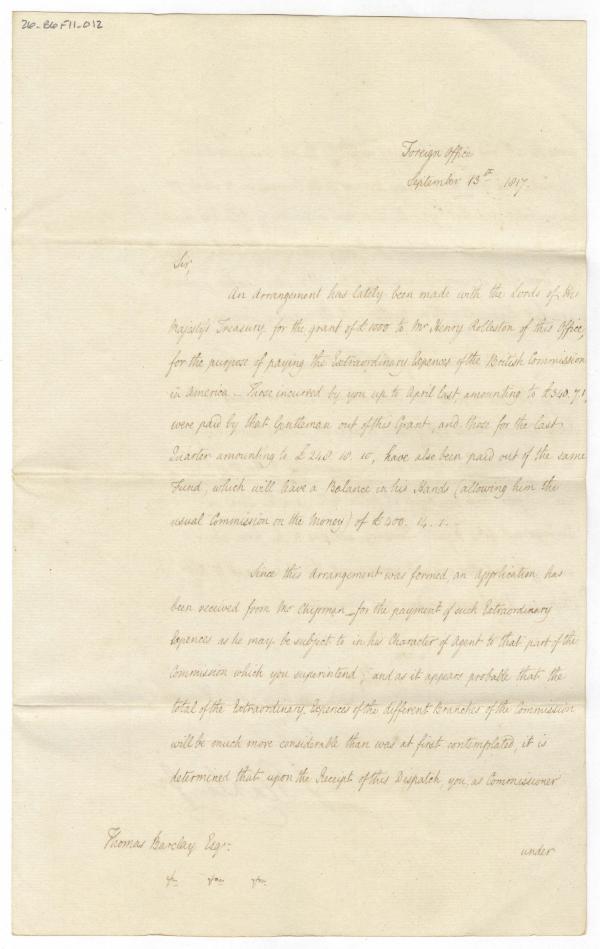 26-B6F11-012
Foreign Office
September 13th 1817.
Sir,
An Arrangement has lately been made with the Lords of His
Majesty's Treasury for the grant of £1000 to Mr Henry Rolleston of this Office,
for the purpose of paying the Extraordinary Expences of the British Commission
in America – Those incurred by you up to April last amounting to £340.7.1,
were paid by that Gentleman out of this Grant, and those for the last
Quarter amounting to £248. 10. 10, have also been paid out of the same
Fund, which will leave a Balance in his Hands (allowing him the
usual Commission on the Money) of £400. 14. 1. –
Since this Arrangement was formed, an Application has
been received from Mr Chipman for the payment of such Extraordinary
Expences as he may be subject to in his Character of Agent to that part of the
Commission which you superintend; and as it appears probable that the
total of the Extraordinary Expences of the different Branches of the Commission
will be much more considerable than was at first contemplated, it is
determined that upon the Receipt of this Dispatch, you, as Commissioner
Thomas Barclay Esqr:
under